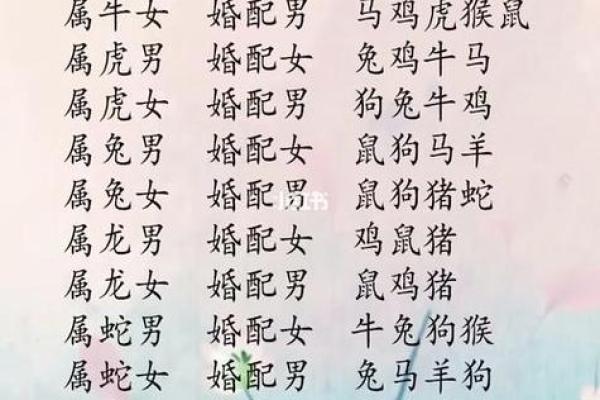 属牛女 婚配男 马鸡虎猴鼠
属虎男 婚配女 兔鸡牛马
属虎女 婚配男 狗兔牛鸡
属兔男 婚配女 鼠狗马羊
属兔女 婚配男 鼠狗猪蛇
属龙男 婚配女 鸡鼠猪
属龙女 婚配男 鼠鸡猪
属蛇男 婚配女 牛兔狗猴
属蛇女 婚配男 兔马羊狗